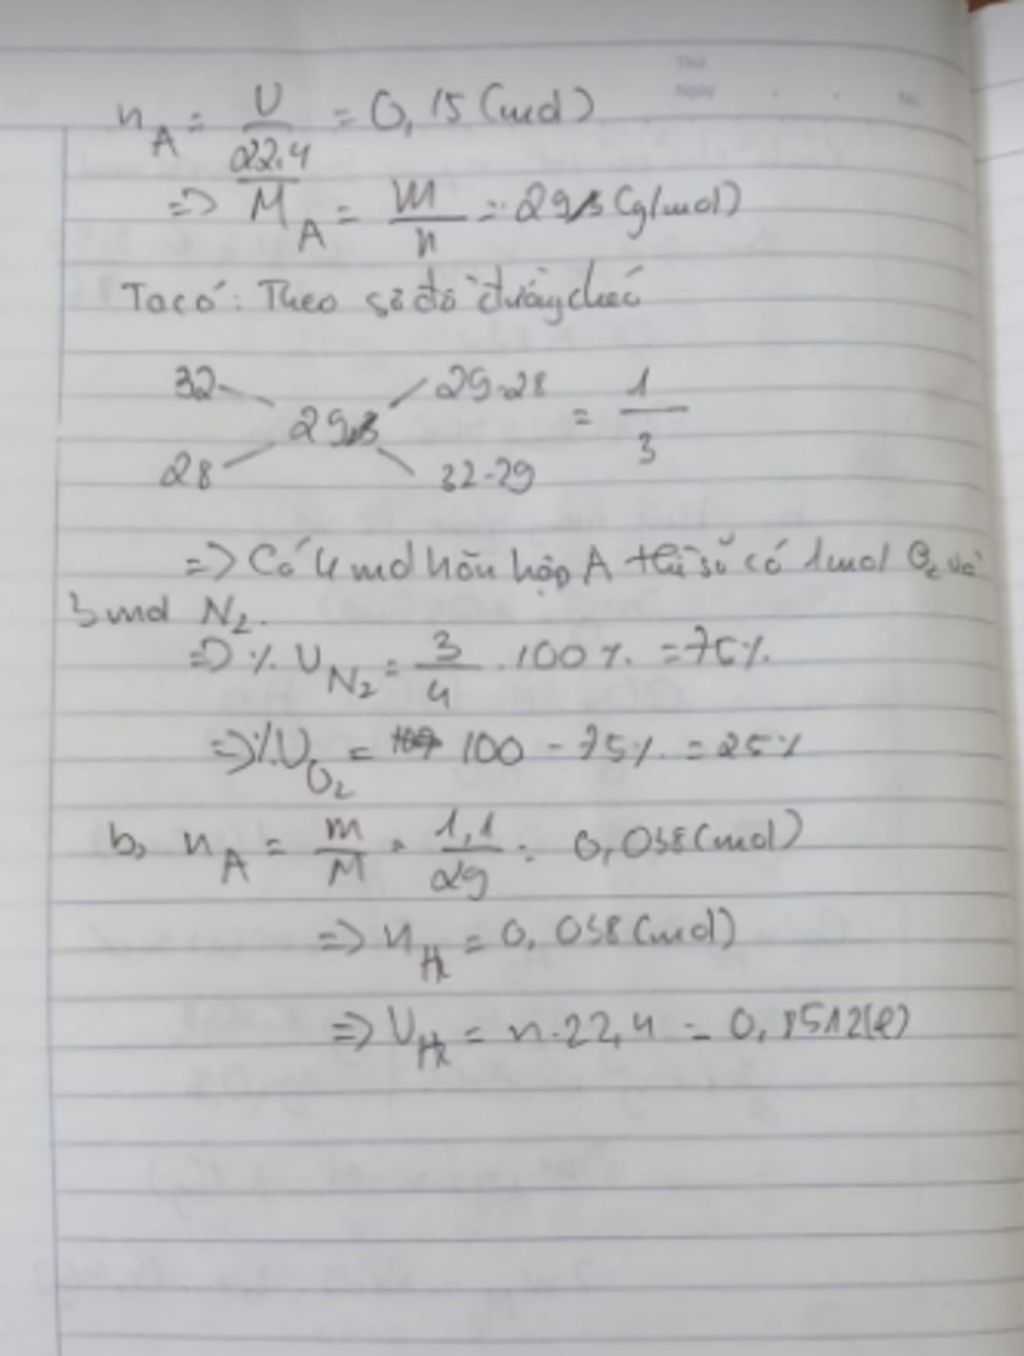 Thứ
Ngày
No.
n_A = V/22,4 = 0,15 (mol)
=> M̅_A = m/n = 29 (g/mol)
Ta có: Theo sơ đồ đường chéo
32 29-28
29 = 1/3
28 32-29
=> Cứ 4 mol hỗn hợp A thì sẽ có 1 mol O₂ và
3 mol N₂.
=> % V_N₂ = 3/4 . 100 % = 75%
=> % V_O₂ = 100 - 75% = 25%
b, n_A = m/M = 1,1/29 = 0,038 (mol)
=> n_H₂ = 0,038 (mol)
=> V_H₂ = n.22,4 = 0,8512(l)